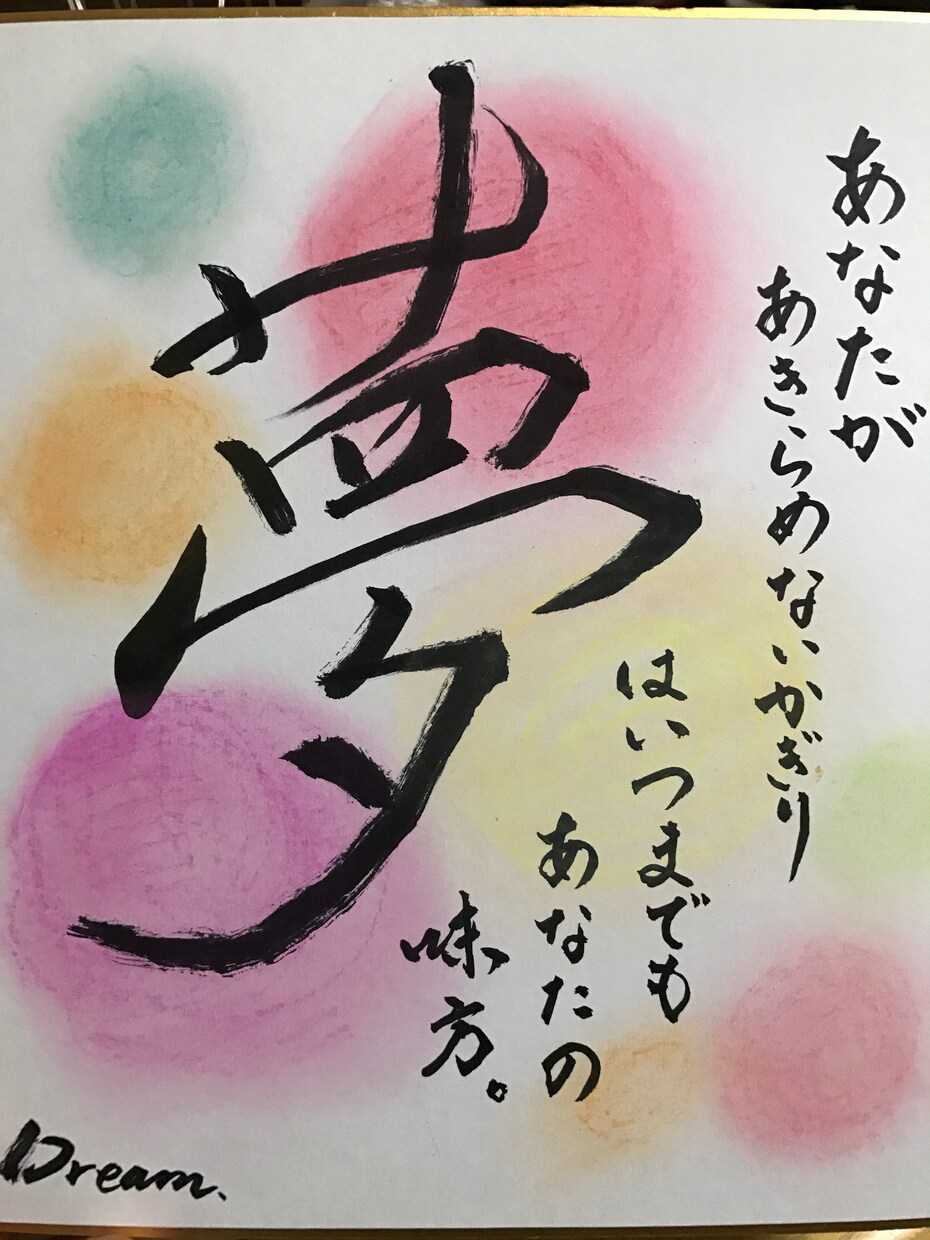 夢
あなたが
あきらめないかぎり
はいつまでも
あなたの
味方。
Dream.